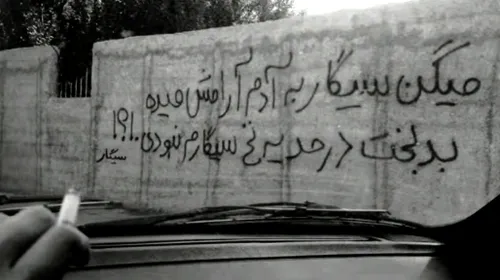 میگن سیگار به آدم آرامش میده
بدبخت در حد یه نخ سیگارم نبودی.!؟!
سیگار